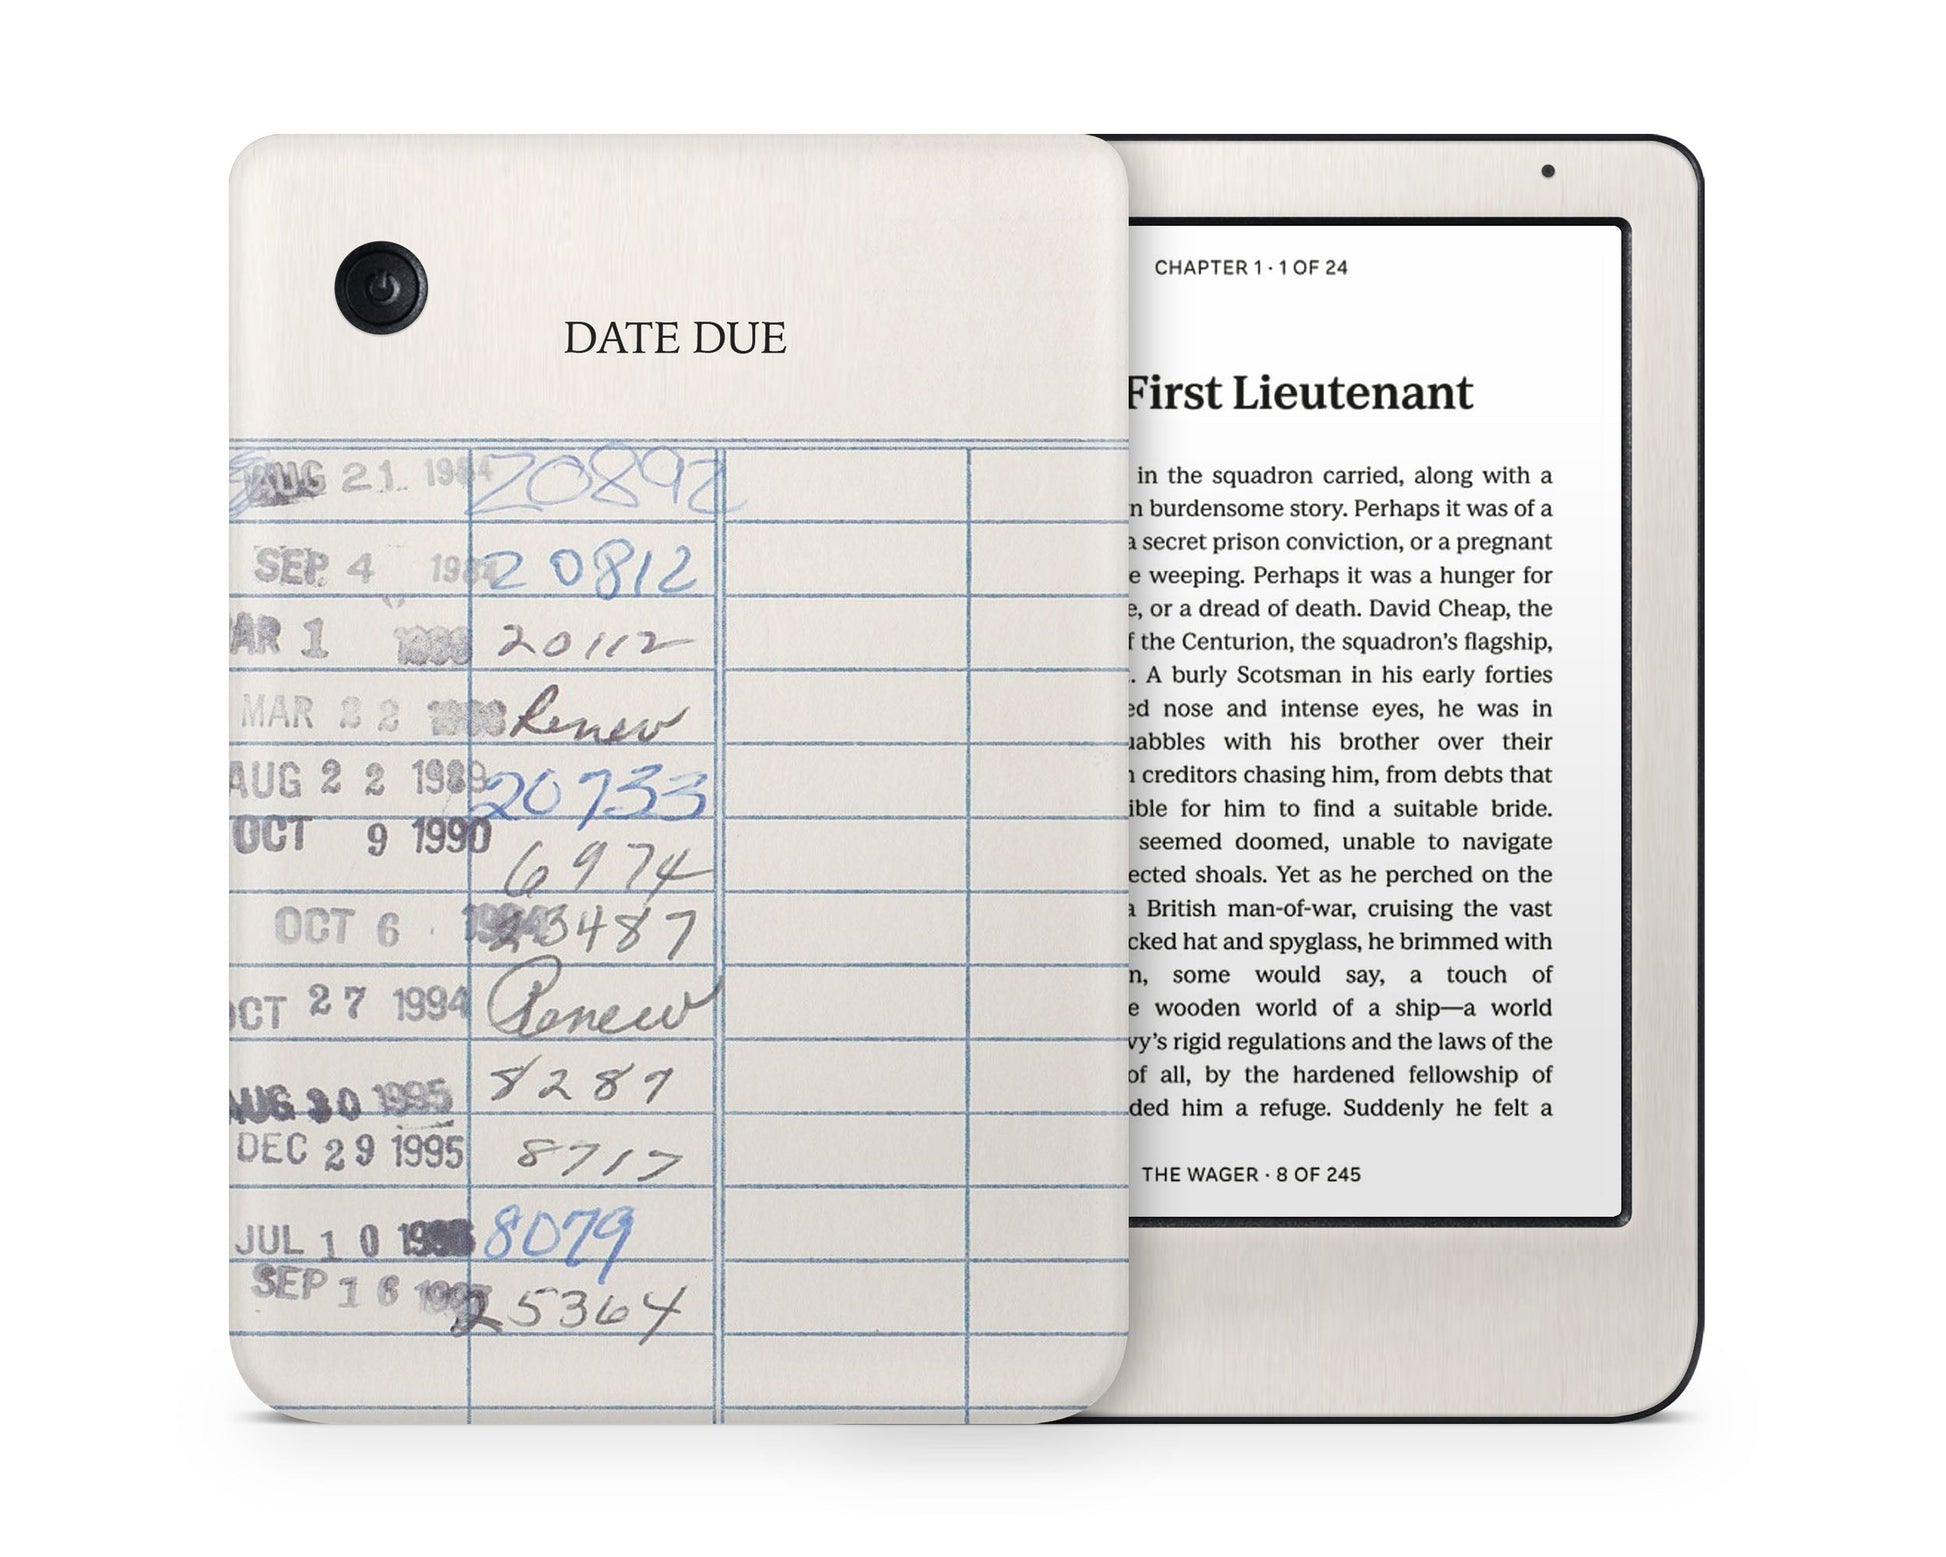 DATE DUE
AUG 21 1984 20892
SEP 4 20812
AR 1 20112
MAR Renew
AUG 22 1989 20733
OCT 9 1990 6974
OCT 6 23487
OCT 27 1994 Renew
AUG 30 1995 8287
DEC 29 1995 8717
JUL 10 8079
SEP 16 25364
CHAPTER 1 · 1 OF 24
First Lieutenant
in the squadron carried, along with a
n burdensome story. Perhaps it was of a
a secret prison conviction, or a pregnant
e weeping. Perhaps it was a hunger for
e, or a dread of death. David Cheap, the
f the Centurion, the squadron's flagship,
. A burly Scotsman in his early forties
ed nose and intense eyes, he was in
uabbles with his brother over their
creditors chasing him, from debts that
ible for him to find a suitable bride.
seemed doomed, unable to navigate
ected shoals. Yet as he perched on the
a British man-of-war, cruising the vast
cked hat and spyglass, he brimmed with
n, some would say, a touch of
e wooden world of a ship—a world
vy's rigid regulations and the laws of the
of all, by the hardened fellowship of
ded him a refuge. Suddenly he felt a
THE WAGER · 8 OF 245